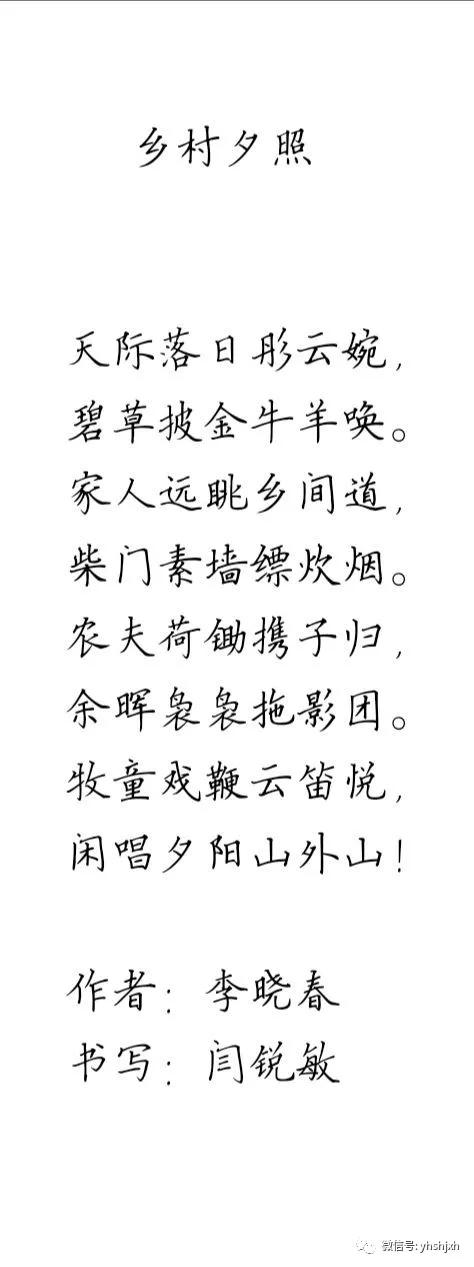 乡村夕照
天际落日彤云婉，
碧草披金牛羊唤。
家人远眺乡间道，
柴门素墙缥炊烟。
农夫荷锄携子归，
余晖袅袅拖影团。
牧童戏鞭云笛悦，
闲唱夕阳山外山！
作者：李晓春
书写：闫锐敏
微信号: yhshjxh